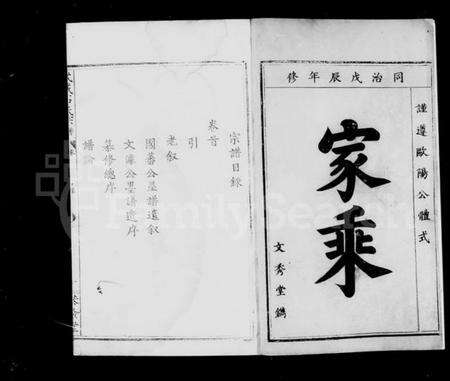 同治戊辰年修
謹遵歐陽公體式
家乘
文秀堂鐫
宗譜目錄
卷首
引
老叙
國蕃公墨譜遺叙
文蔚公墨譜遺序
纂修總序
譜論
FamilySearch